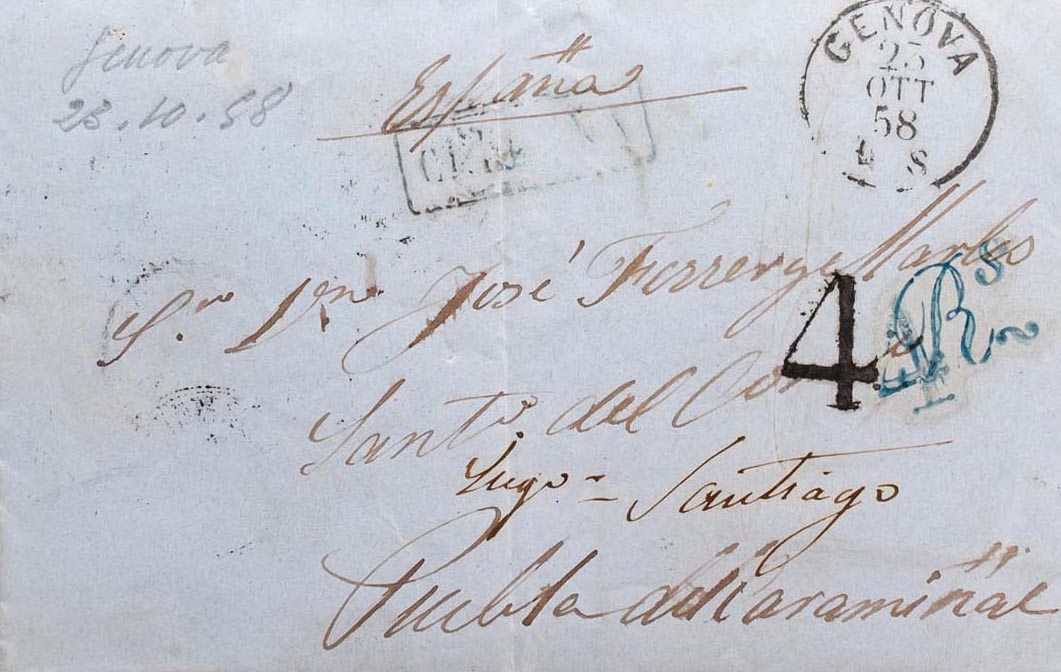 Genova
23.10.58
España
GENOVA
25
OTT
58
8
Sr. Dn. José Ferrer y
4
4 Rs
Santo. del
Lugo = Santiago
Puebla del Caramiñal